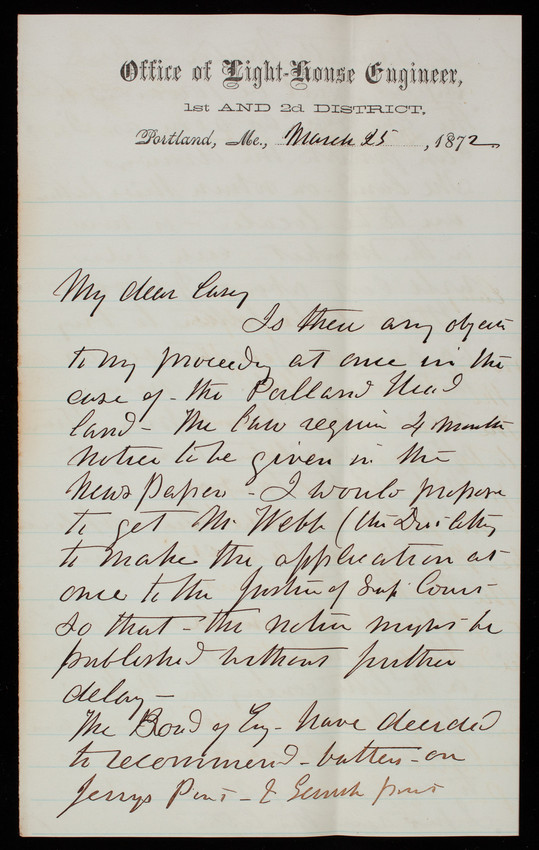 Office of Light-House Engineer,
1st AND 2d DISTRICT,
Portland, Me., March 25, 1872
My dear Casey
Is there any object
to my proceedg at once in the
case of the Portland Head
land - The law require 4 months
notice to be given in the
News Paper - I would propose
to get Mr Webb (the Dist Atty
to make the application at
once to the Justice of Sup Court
so that the notice might be
published without further
delay -
The Board of Eng - have decided
to recommend - batters - on
Jerrys Point - &